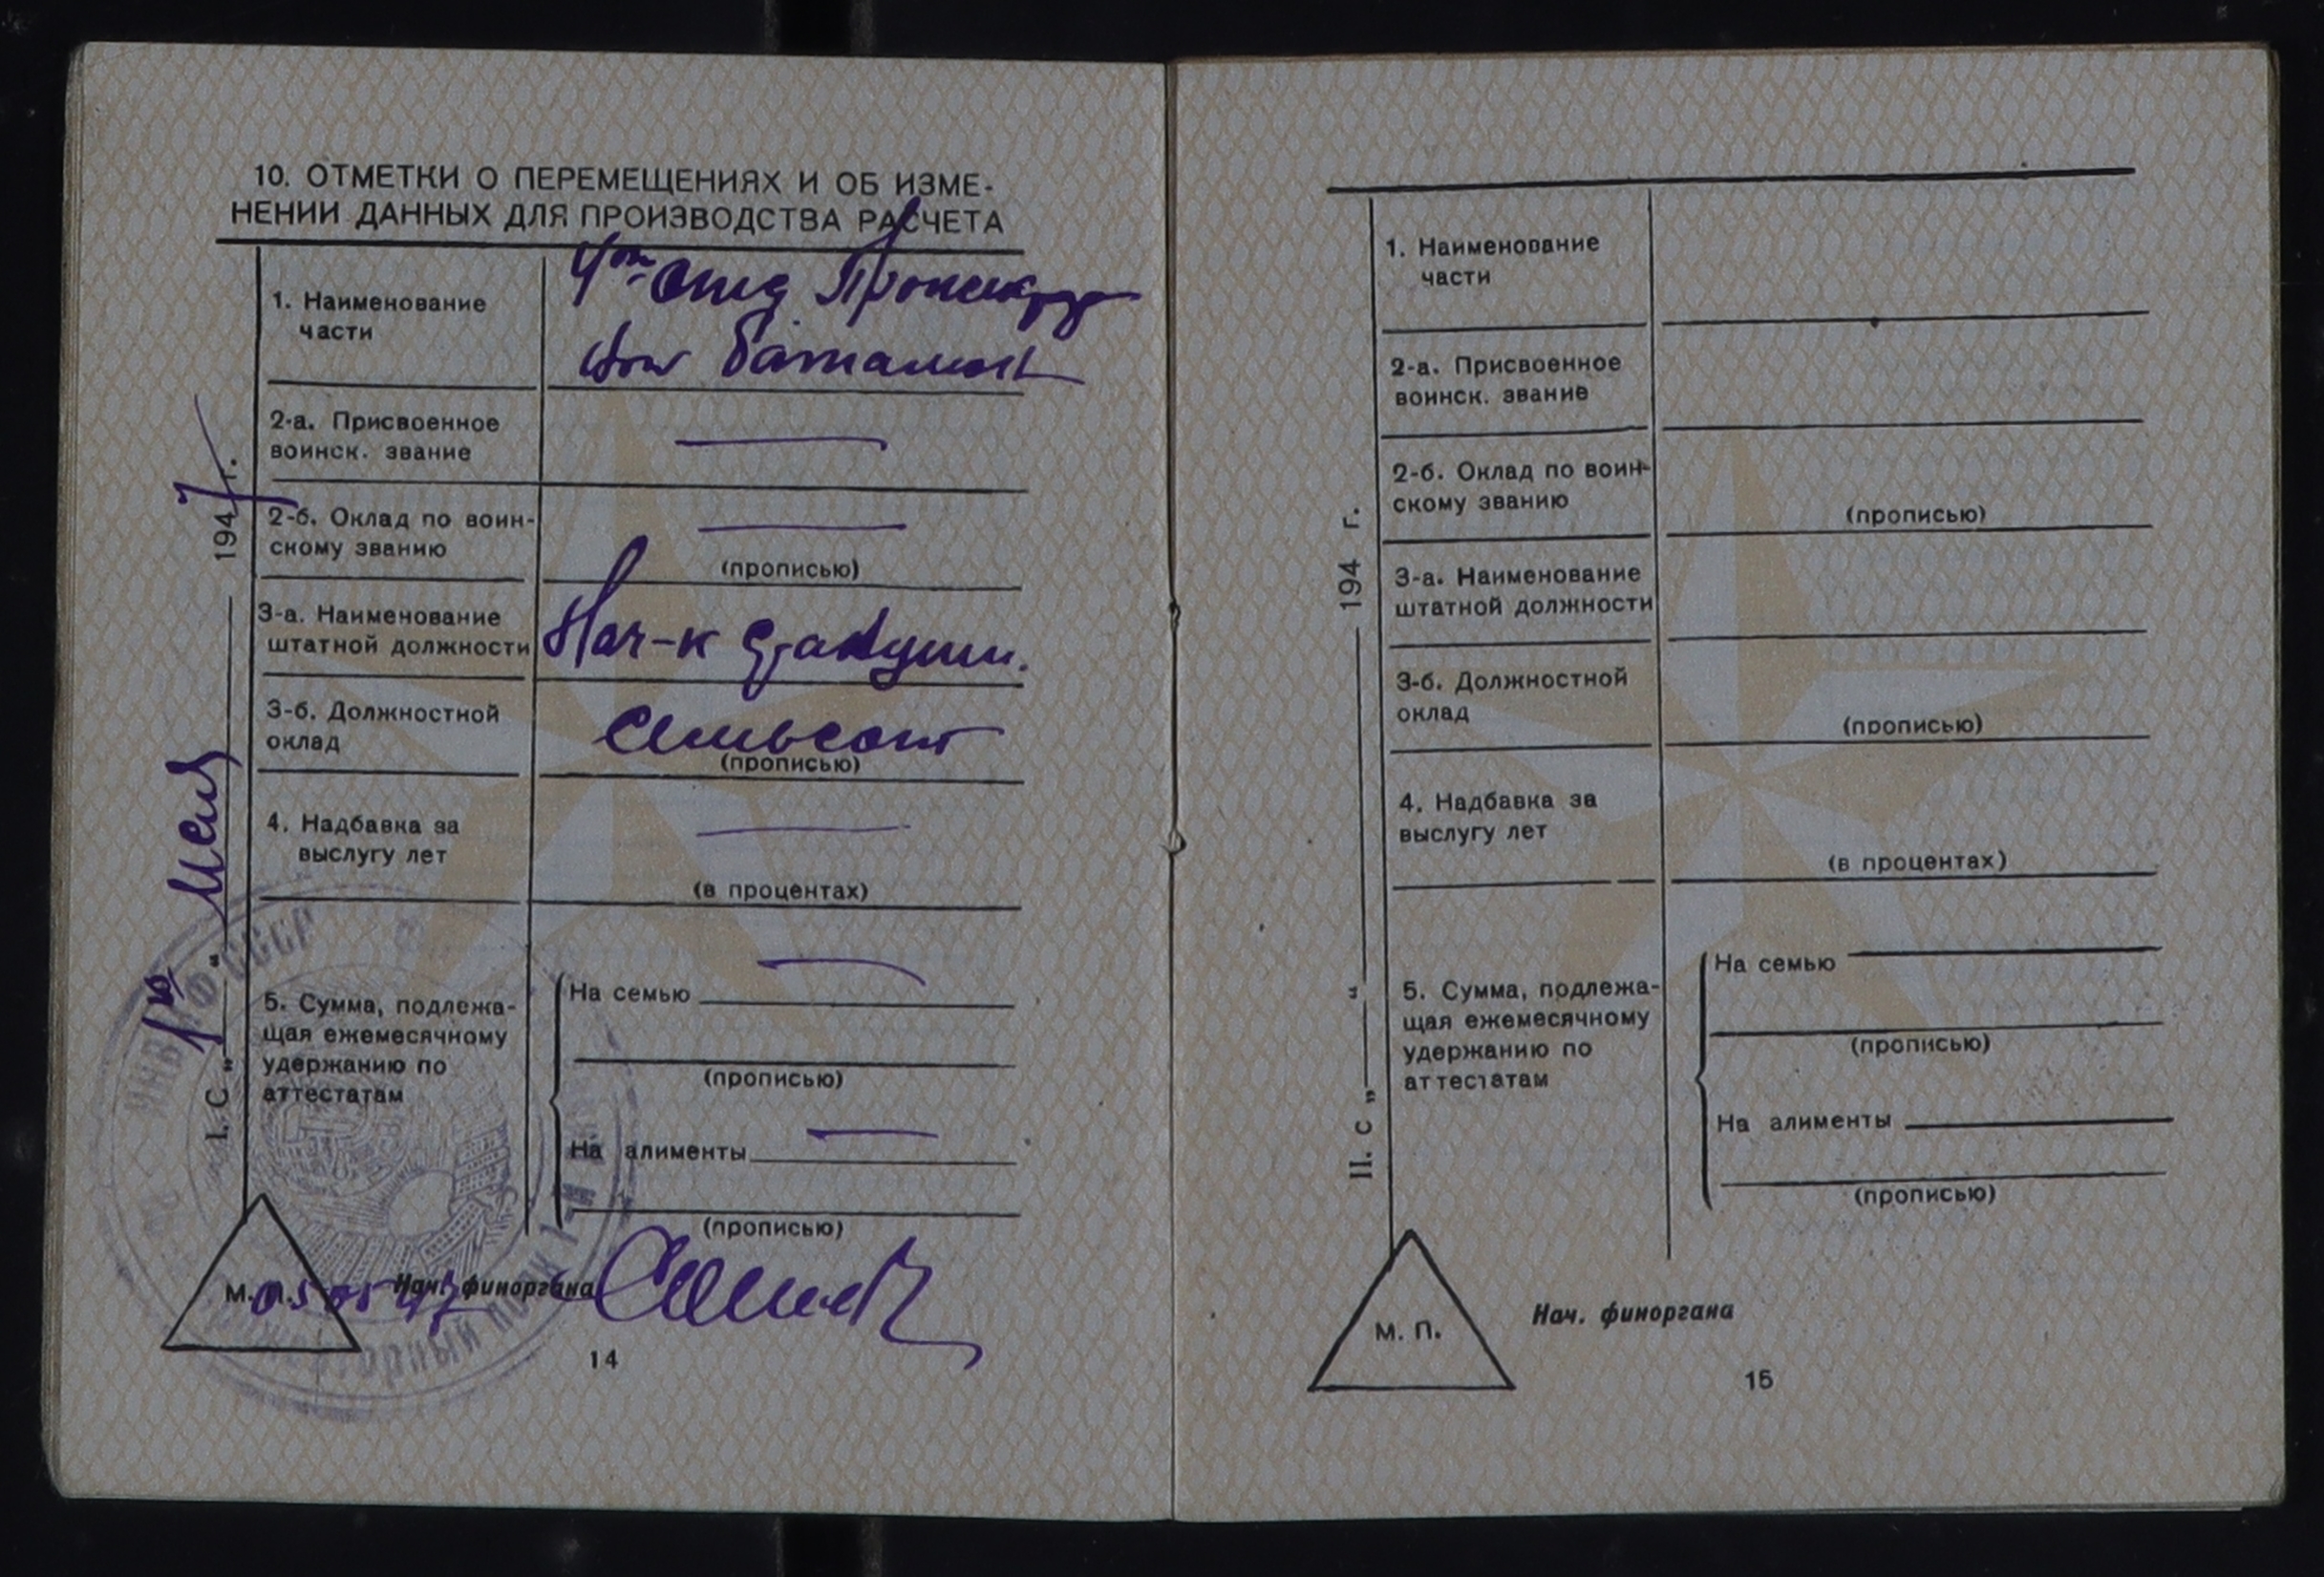 10. ОТМЕТКИ О ПЕРЕМЕЩЕНИЯХ И ОБ ИЗМЕ-
НЕНИИ ДАННЫХ ДЛЯ ПРОИЗВОДСТВА РАСЧЕТА
I. С „ “ 1947 г.
1. Наименование
части
батальон
2-а. Присвоенное
воинск. звание
2-б. Оклад по воин-
скому званию
(прописью)
3-а. Наименование
штатной должности
Нач-к
3-б. Должностной
оклад
Семьсот
(прописью)
4. Надбавка за
выслугу лет
(в процентах)
5. Сумма, подлежа-
щая ежемесячному
удержанию по
аттестатам
На семью
(прописью)
На алименты
(прописью)
М. П.
Нач. финоргана
14
II. С „ “ 194 г.
1. Наименование
части
2-а. Присвоенное
воинск. звание
2-б. Оклад по воин-
скому званию
(прописью)
3-а. Наименование
штатной должности
3-б. Должностной
оклад
(прописью)
4. Надбавка за
выслугу лет
(в процентах)
5. Сумма, подлежа-
щая ежемесячному
удержанию по
аттестатам
На семью
(прописью)
На алименты
(прописью)
М. П.
Нач. финоргана
15